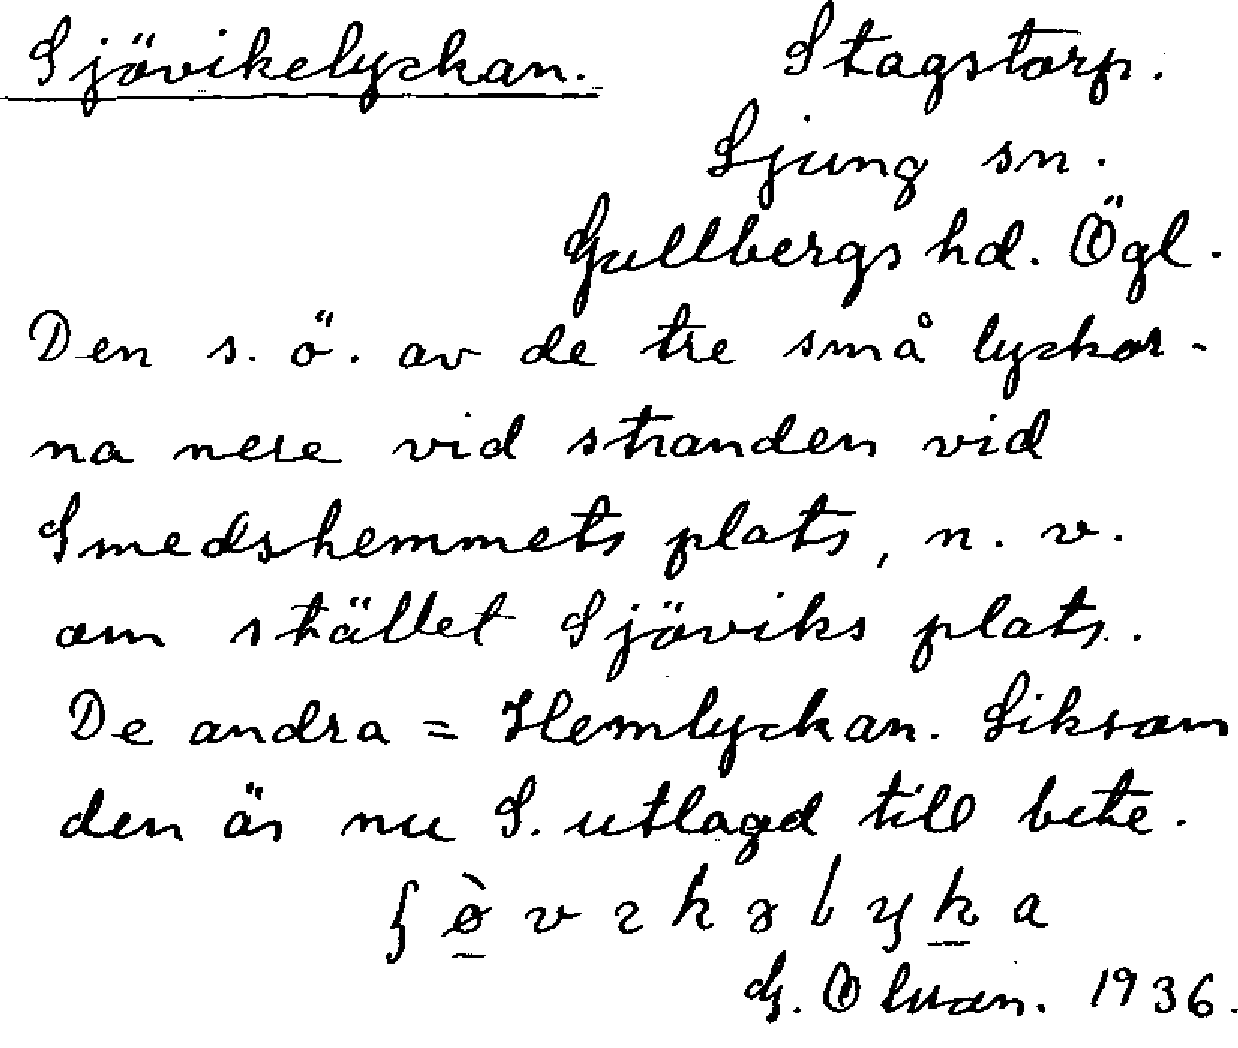 Sjövikelyckan. Stagstorp.
Ljung sn.
Gullbergs hd. Ögl.
Den s. ö. av de tre små lyckor-
na nere vid stranden vid
Smedshemmets plats, n. v.
om stället Sjöviks plats.
De andra = Hemlyckan. Liksom
den är nu S. utlagd till bete.
1936.